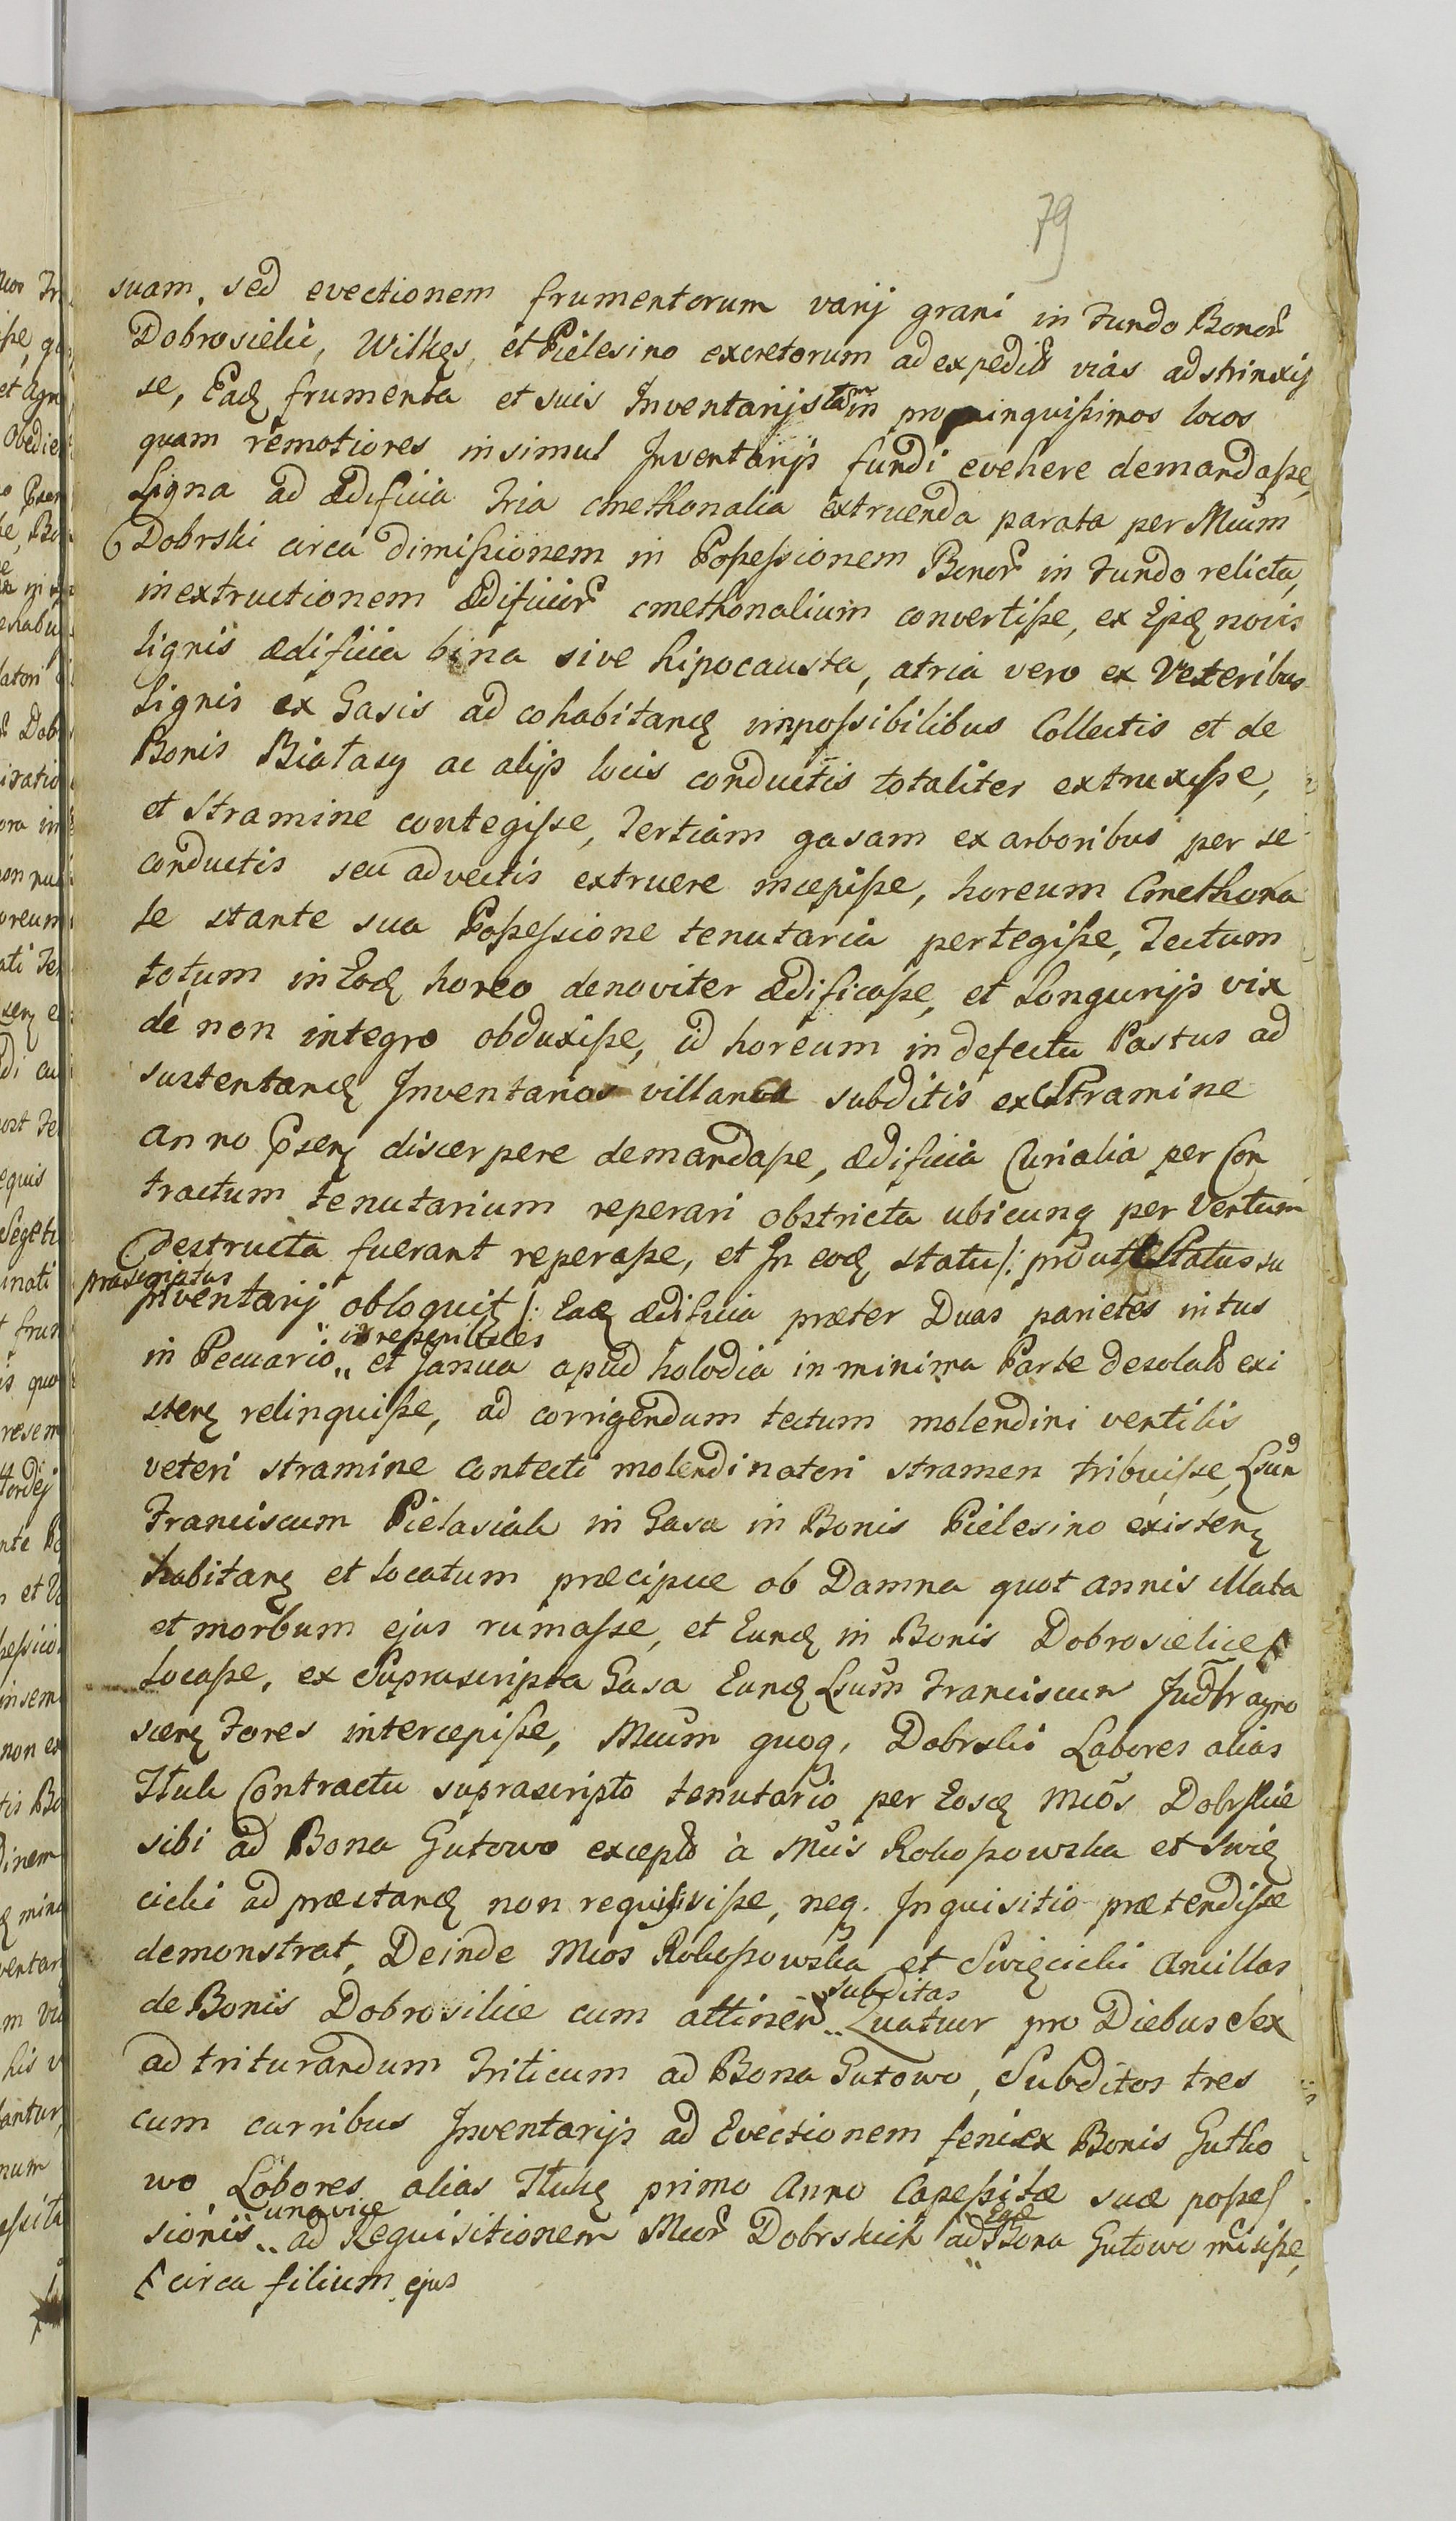 79
suam, sed evectionem frumentorum varij grani in Fundo Bonor̃
Dobrosielic, Wilkęs, et Pielesino excretorum ad expedit͠ vias adstrinxis
se, Eadę frumenta et suis Inventarijs tam in propinquißimos locos
quam remotiores insimul Inventarijs fundi evehere demandaße,
Ligna ad ædificia Tria cmethonalia extruenda parata per Mcum
Dobrski circa dimißionem in Poßeßionem Bonor̃ in Fundo relicta,
in extructionem ædificior̃ cmethonalium convertiße, ex Ijsdę novis
lignis ædificia bina sive hipocausta, atria vero ex Veteribus
Lignis ex Gasis ad cohabitandę impoßibilibus Collectis et de
Bonis Białasy ac alijs locis conductis totaliter extruxiße,
et stramine contegisse, Tertiam gasam ex arboribus per se
conductis seu advectis extruere incepiße, horeum Cmethona
le stante sua Poßeßione tenutaria pertegiße, Tectum
totum in Eodę horeo denoviter ædificaße, et Longurijs vix
de non integro obduxiße, id horeum in defectu Pastus ad
sustentandę Inventarios villanos subditis ex Stramine
anno Pserę discerpere demandaße, ædificia Curialia per Con
tractum tenutarium reperari obstricta ubicunq per Ventum
destructa fuerant reperaße, et In eodę statu /: prout Status su
præscriptus
inventarij obloquit /: Eadę ædificia præter Duas parietes intus
irreperibiles
in Pecuario et Janua apud holodia in minima Parte desolat͠ exi
sterę relinquiße, ad corrigendum tectum molendini ventilis
veteri stramine contecti molendinatori stramen tribuisse, Lsum
Franciscum Pielasiak in Gasa in Bonis Pielesino existenę
habitanę et locatum præcipue ob Damna quot annis illata
et morbum ejus rumasse, et Eundę in Bonis Dobrosielice
locaße, ex Suprascripta Gasa Eundę Lsum Franciscum
scerę Fores intercepiße, Mcum quoq, Dobrski Labores alias
Tłuk Contractu suprascripto tenutario per Eosdę Mcos Dobrskie
sibi ad Bona Gutowo except͠ à Mcis Rokoßowska et Swię
cicki ad præstandę non requisiviße, neq. Inquisitio prætendiße
demonstrat, Deinde Mcos Rokoßowska et Swięcicki Ancillas
subditas
de Bonis Dobrosilice cum attinen͠ Quatuor pro Diebus Sex
ad triturandum Triticum ad Bona Gutowo, Subditos tres
cum curribus Inventarijs ad Evectionem feni ex Bonis Gutko
wo Labores alias Tłukę primo Anno Capeßitæ suæ poßes
una vice
Eadę
sionis ad Requisitionem Mcor̃ Dobrskich ad Bona Gutowo misiße,
circa filium ejus